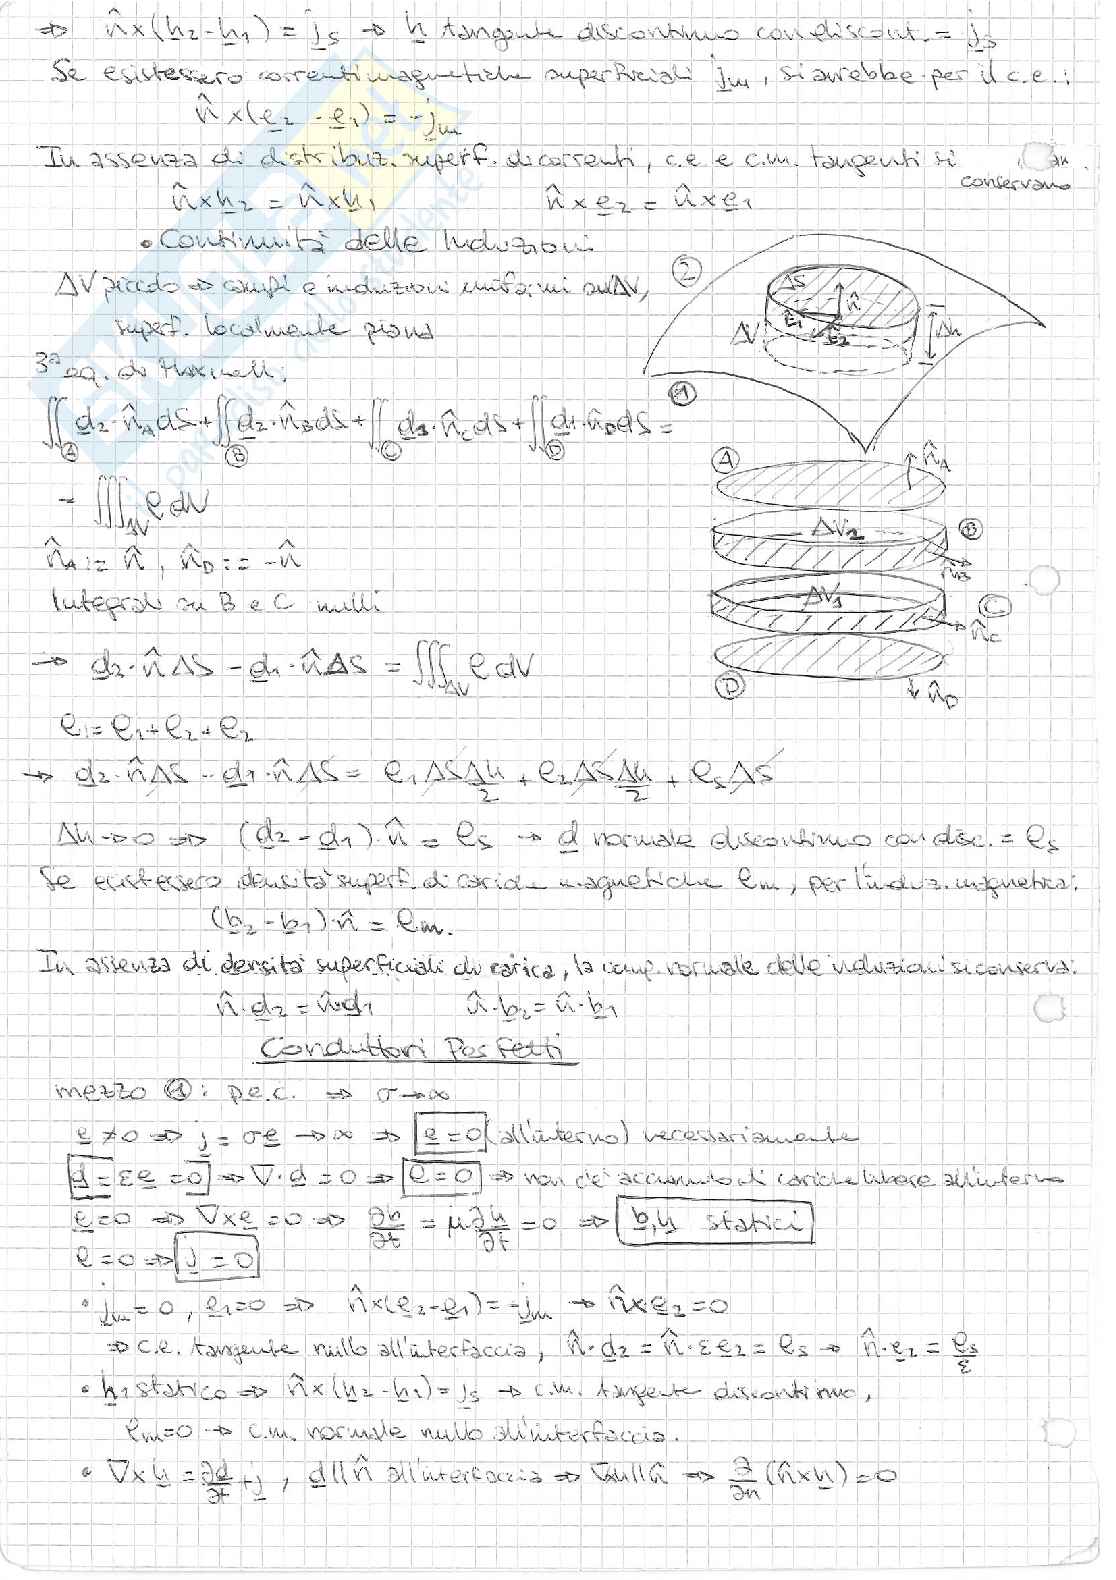 ⇒ n̂×(h₂-h₁) = jₛ → h tangente discontinuo con discont. = jₛ
Se esistessero correnti magnetiche superficiali jₘ, si avrebbe per il c.e.:
n̂×(e₂-e₁) = -jₘ
In assenza di distribuz. superf. di correnti, c.e. e c.m. tangenti si conservano
n̂×h₂ = n̂×h₁ n̂×e₂ = n̂×e₁
• Continuità delle Induzioni
ΔV piccolo ⇒ campi e induzioni uniformi su ΔV,
superf. localmente piana
3ª eq. di Maxwell:
∬_A d₂·n̂_A dS + ∬_B d₂·n̂_B dS + ∬_C d₁·n̂_C dS + ∬_D d₁·n̂_D dS =
= ∭_ΔV ρ dV
n̂_A := n̂, n̂_D := -n̂
Integrali su B e C nulli
→ d₂·n̂ΔS - d₁·n̂ΔS = ∭_ΔV ρ dV
ρ := ρ₁+ρ₂+ρ₂
→ d₂·n̂ΔS - d₁·n̂ΔS = ρ₁ΔS Δh/2 + ρ₂ΔS Δh/2 + ρₛΔS
Δh→0 ⇒ (d₂-d₁)·n̂ = ρₛ → d normale discontinuo con disc. = ρₛ
Se esistessero densità superf. di cariche magnetiche ρₘ, per l'induz. magnetica:
(b₂-b₁)·n̂ = ρₘ.
In assenza di densità superficiali di carica, la comp. normale delle induzioni si conserva:
n̂·d₂ = n̂·d₁ n̂·b₂ = n̂·b₁
Conduttori Perfetti
mezzo ①: p.e.c. ⇒ σ→∞
e≠0 ⇒ j = σe → ∞ ⇒ e=0 (all'interno) necessariamente
d=εe=0 ⇒ ∇·d=0 ⇒ ρ=0 ⇒ non c'è accumulo di cariche libere all'interno
e=0 ⇒ ∇×e=0 ⇒ ∂b/∂t = μ ∂h/∂t = 0 ⇒ b,h statici
ρ=0 ⇒ j=0
• jₘ=0, e₁=0 ⇒ n̂×(e₂-e₁) = -jₘ → n̂×e₂=0
⇒ c.e. tangente nullo all'interfaccia, n̂·d₂ = n̂·εe₂ = ρₛ → n̂·e₂ = ρₛ/ε
• h₁ statico ⇒ n̂×(h₂-h₁) = jₛ → c.m. tangente discontinuo,
ρₘ=0 → c.m. normale nullo all'interfaccia.
• ∇×h = ∂d/∂t + j, d∥n̂ all'interfaccia ⇒ ∇×h∥n̂ ⇒ ∂/∂n (n̂×h) = 0
②
ΔS
n̂
e₁
e₂
ΔV
Δh
①
A
n̂_A
ΔV₂
B
n̂_B
ΔV₁
C
n̂_C
D
n̂_D